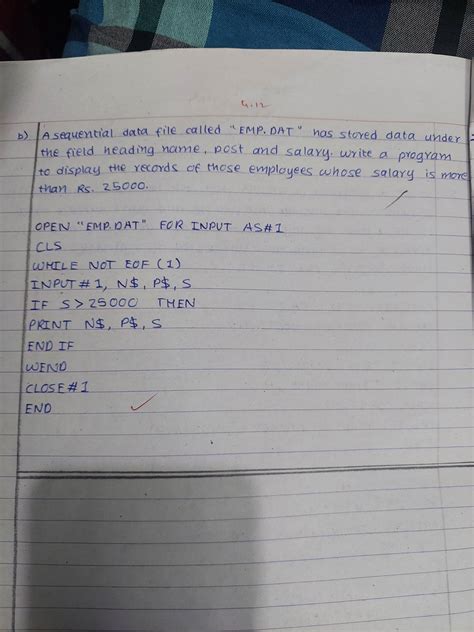 4.12
b) A sequential data file called "EMP.DAT" has stored data under
the field heading name, post and salary. Write a program
to display the records of those employees whose salary is more
than Rs. 25000.
OPEN "EMP.DAT" FOR INPUT AS#1
CLS
WHILE NOT EOF (1)
INPUT #1, N$, P$, S
IF S > 25000 THEN
PRINT N$, P$, S
END IF
WEND
CLOSE #1
END